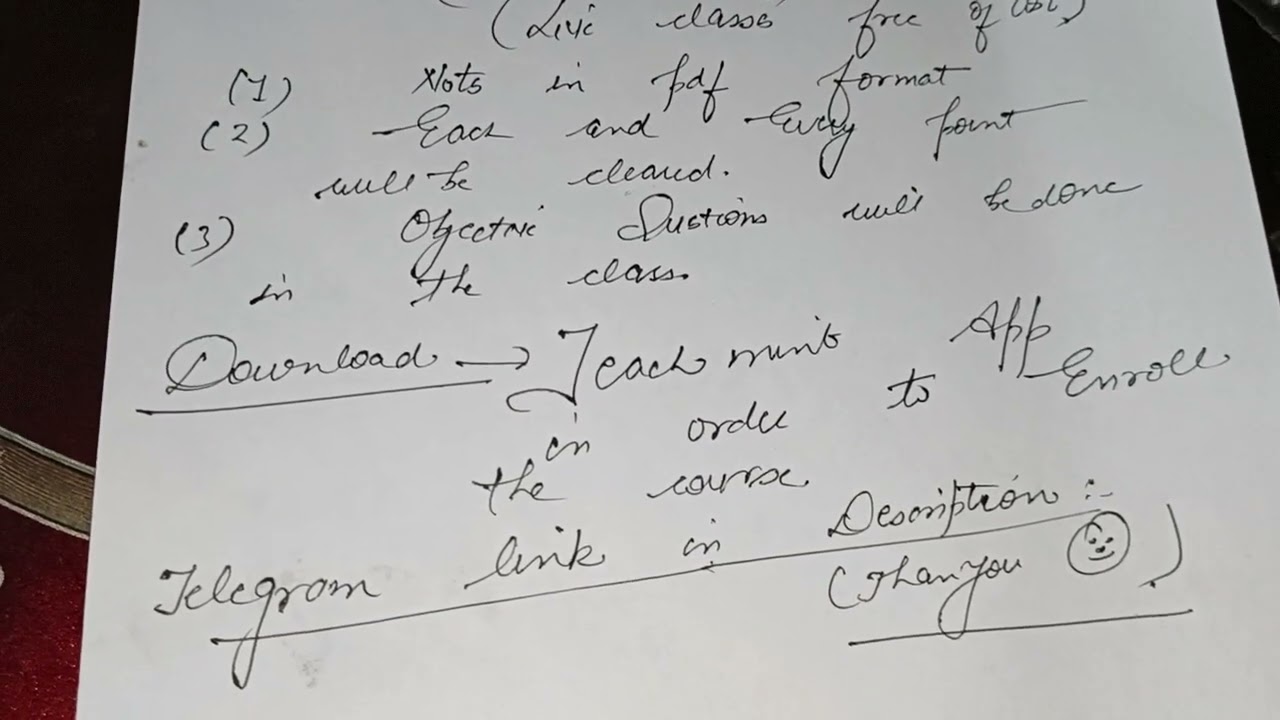 (Live classes free of cost)
(1) Nots in pdf format
(2) Each and Every point
will be cleared.
(3) Objective Questions will be done
in the class.
Download → Teachmint App
in order to Enroll
the course.
Telegram link in Description :-
(Thanyou ☺ ).